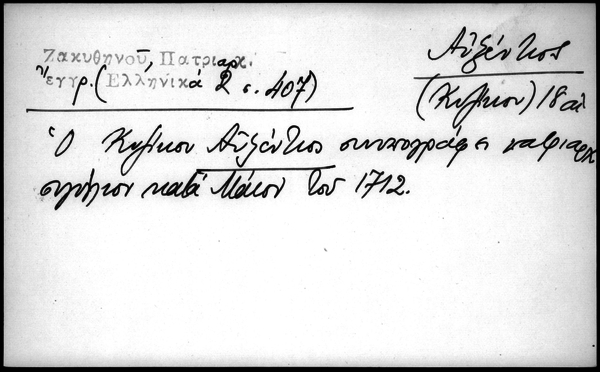 Ζακυθηνοῦ, Πατριαρχ.
ἔγγρ. (Ἑλληνικά 2 σ. 407)
Αὐξέντιος
(Κυζίκου) 18 αἰ
Ὁ Κυζίκου Αὐξέντιος συνυπογράφει πατριαρχ
κατά Μάιον τοῦ 1712.